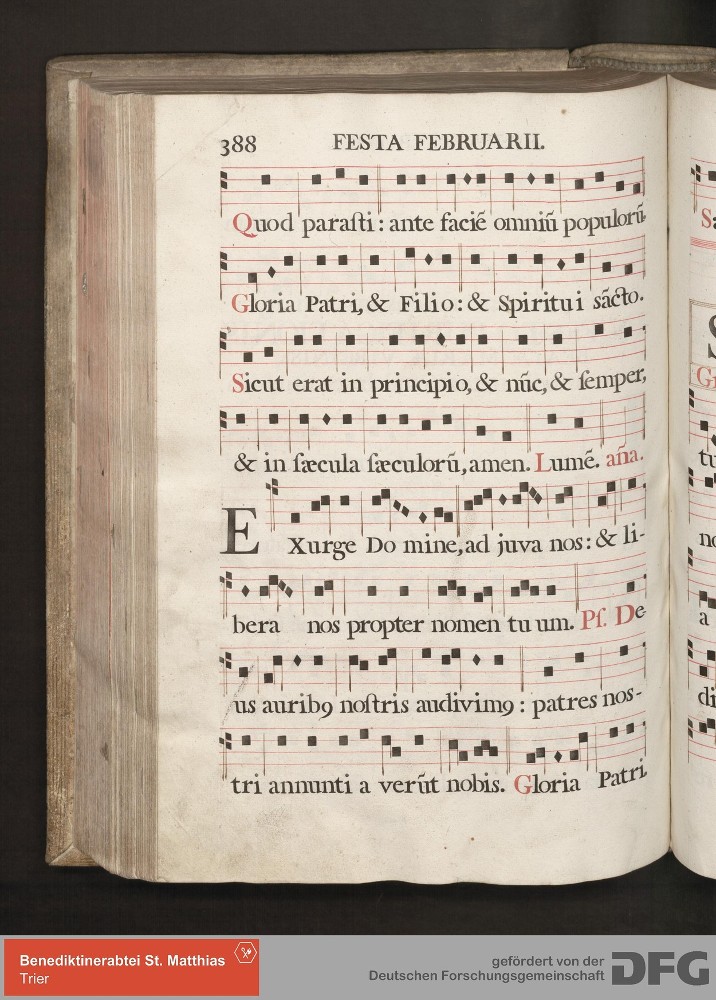 388 FESTA FEBRUARII.
Quod paraſti: ante faciē omniū populorū.
Gloria Patri, & Filio: & Spiritui sācto.
Sicut erat in principio, & nūc, & ſemper,
& in ſæcula ſæculorū, amen. Lumē. aña.
EXurge Domine, ad juva nos: & li-
bera nos propter nomen tuum. Pſ. De-
us auribꝰ noſtris audivimꝰ: patres nos-
tri annuntia verūt nobis. Gloria Patri.
Benediktinerabtei St. Matthias
Trier
gefördert von der
Deutschen Forschungsgemeinschaft
DFG